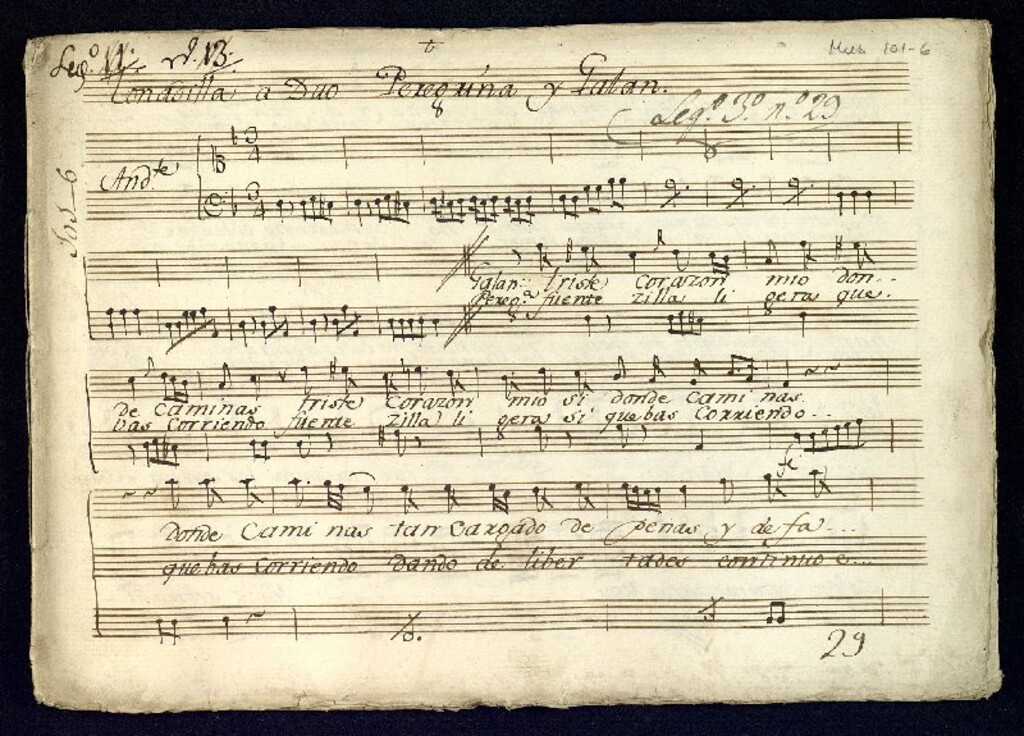 Leg.º 11. nº. 13. Mus 101-6
Tonadilla a Duo Peregrina y Galan.
8
Leg.º 3.º n.º 29
And.te
Galan: triste Corazon mio don..
Pereg.a fuente zilla li gera que.
de Caminas triste Corazon mio si donde Cami nas.
bas Corriendo fuente zilla li gera si que bas Corriendo..
donde Cami nas tan Cargado de penas y de fa...
que bas Corriendo dando de liber tades continuo e...
29